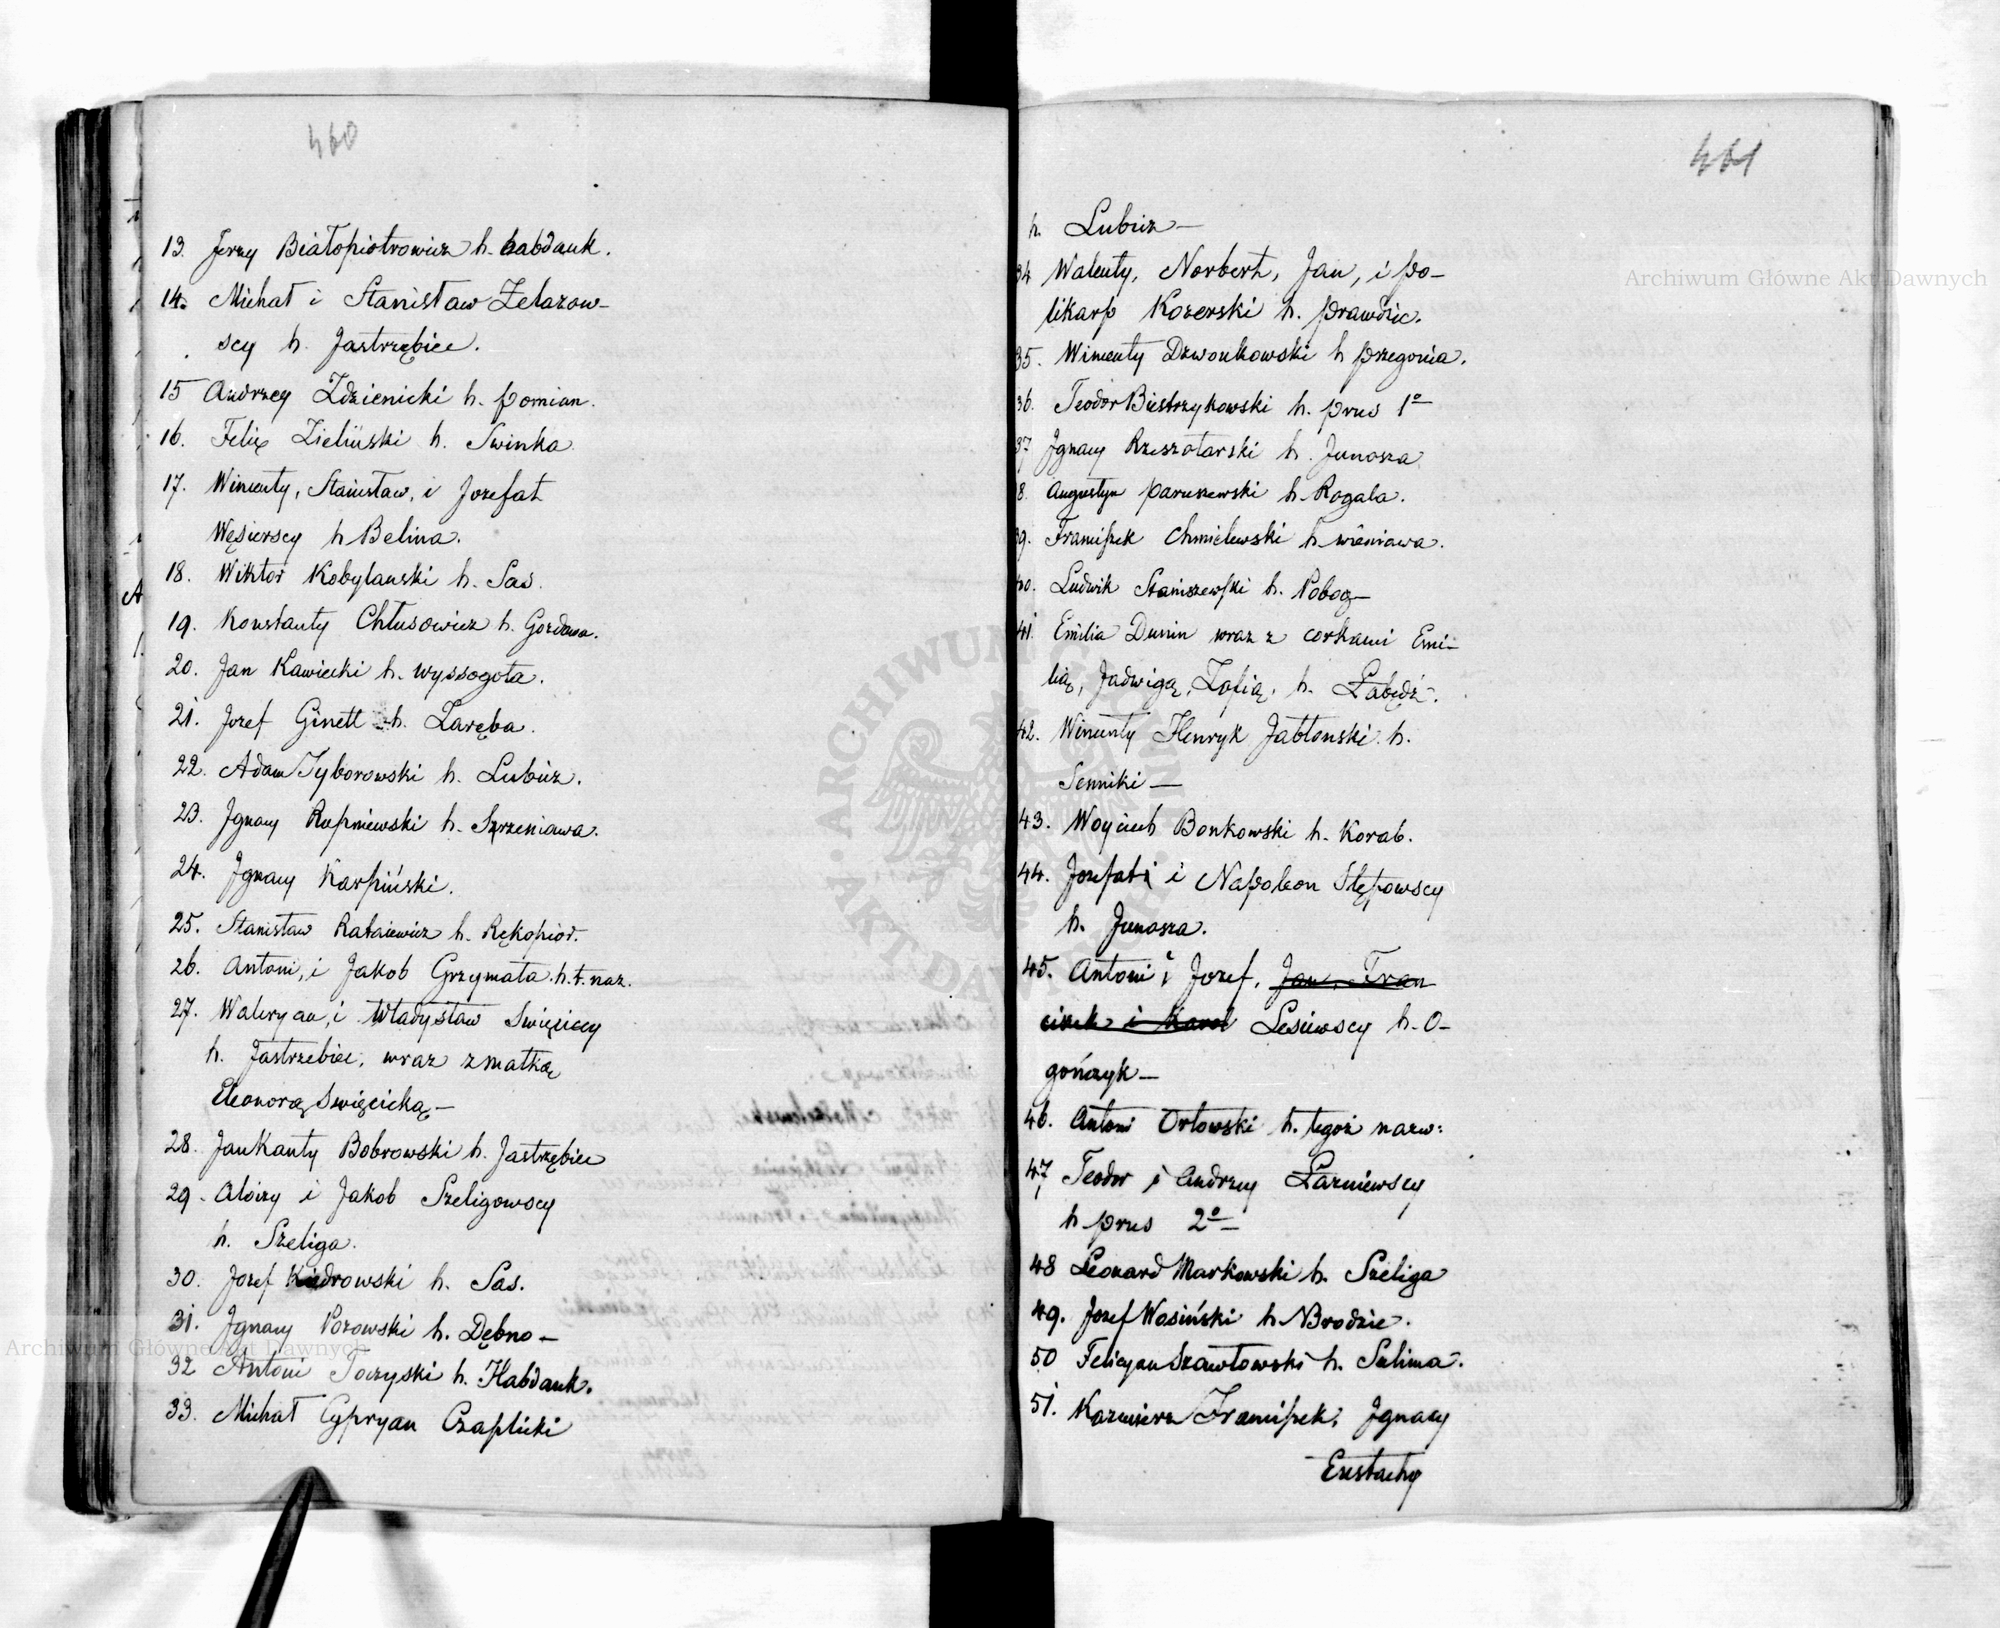 460
13. Jerzy Białopiotrowicz h. habdank.
14. Michał i Stanisław Zelazow-
scy h. Jastrzębiec.
15 Andrzey Zdzienicki h. Pomian.
16. Felix Zieliński h. Swinka
17. Wincenty, Stanisław, i Jozefat
Węsierscy h Belina.
18. Wiktor Kobylanski h. Sas.
19. Konstanty Chłusowicz h. Gozdawa.
20. Jan Kawiecki h. Wyssogota.
21. Jozef Ginett h. Zaręba.
22. Adam Tyborowski h. Lubicz.
23. Jgnacy Rupniewski h. Szrzeniawa.
24. Jgnacy Karpiński.
25. Stanisław Rataiewicz h. Rękopior.
26. Antoni, i Jakob Grzymała h. t. naz.
27. Waleryan, i Władysław Swięciccy
h. Jastrzebiec, wraz z matką
Eleonorą Swięcicką —
28. Jan Kanty Bobrowski h. Jastrzębiec
29 - Aloizy i Jakob Szeligowscy
h. Szeliga.
30. Jozef Kiedrowski h. Sas.
31. Jgnacy Porowski h. Dębno —
32 Antoni Toczyski h. Habdank.
33. Michał Cypryan Czaplicki
461
h. Lubicz —
34 Walenty, Norbert, Jan, i Po-
likarp Kozerski h. Prawdzic.
35. Wincenty Dzwonkowski h Przegonia.
36. Teodor Biestrzykowski h. Prus 1º
37 Jgnacy Rzeszotarski h. Junosza
8. Augustyn Paruszewski h. Rogala.
39. Franciszek Chmielewski h Wieniawa.
40. Ludwik Staniszewski h. Pobog —
41. Emilia Dunin wraz z corkami Emi-
lią, Jadwigą, Zofią, h. Łabędź.
42. Wincenty Henryk Jabłonski h.
Senniki —
43. Woyciech Bonkowski h. Korab.
44. Jozefat i Napoleon Stępowscy
h. Junosza.
45. Antoni i Jozef, Jan, Fran
ciszek i Karol Lesiewscy h. O-
gończyk —
46. Antoni Orłowski h. tegoż nazw:
47 Teodor i Andrzey Łazniewscy
h Prus 2º
48 Leonard Markowski h. Szeliga
49. Jozef Wosiński h. Brodzic.
50 Felicyan Szawłowski h. Sulima.
51. Kazimierz Franciszek, Jgnacy
Eustachy
Archiwum Główne Akt Dawnych
Archiwum Główne Akt Dawnych